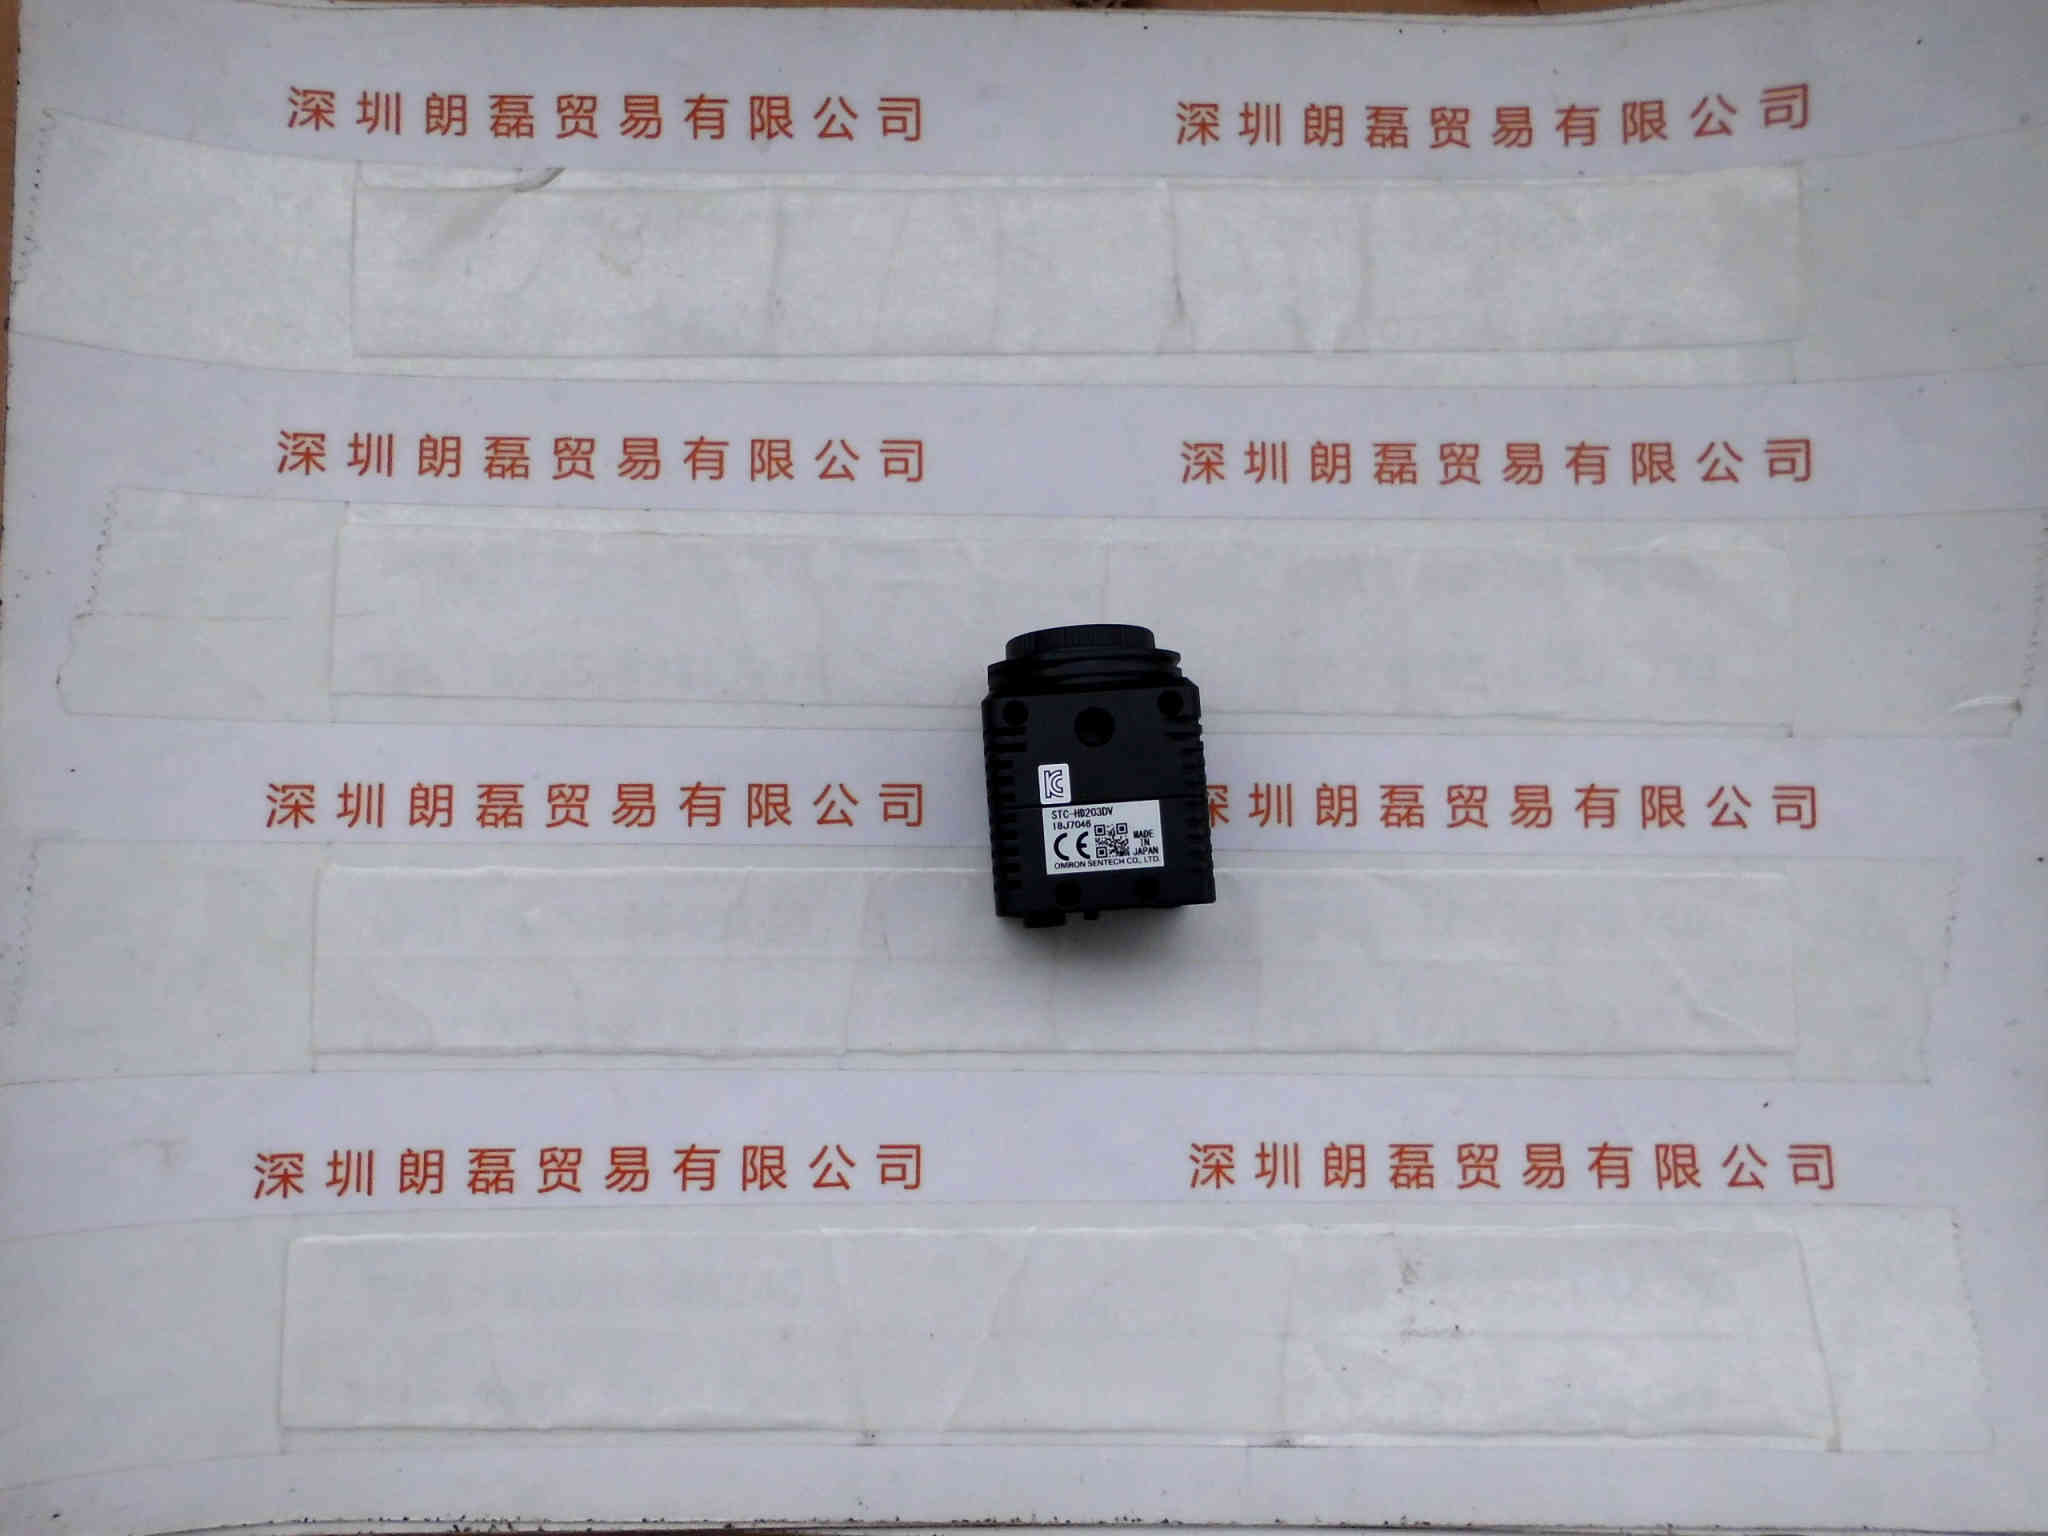 深圳朗磊贸易有限公司 深圳朗磊贸易有限公司
深圳朗磊贸易有限公司 深圳朗磊贸易有限公司
深圳朗磊贸易有限公司 深圳朗磊贸易有限公司
STC-HD203DV
18J7046
CE
MADE
IN
JAPAN
OMRON SENTECH CO., LTD.
深圳朗磊贸易有限公司 深圳朗磊贸易有限公司